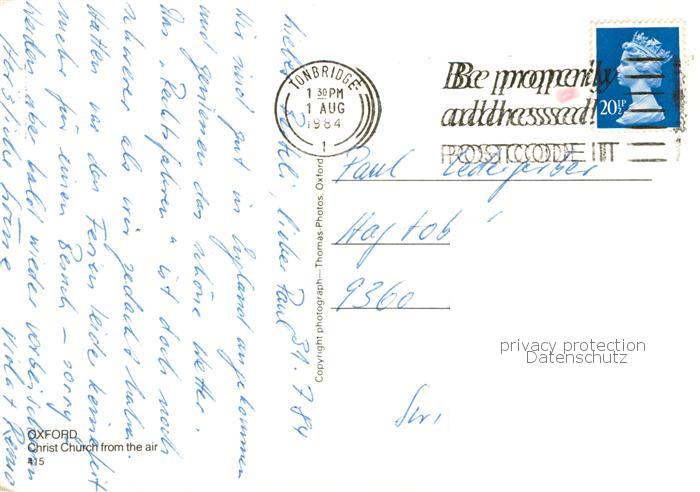 lieber Röteli, lieber Paul 31.7.84
Wir sind gut in England angekommen
und geniessen das schöne Wetter.
Das "Rechtsfahren" ist doch noch
schwerer als wir gedacht haben.
Hatten vor den Ferien leider keine Zeit
mehr für einen Besuch – sorry
Werden aber bald wieder vorbeischauen
Herzliche Grüsse
OXFORD
Christ Church from the air
415
Copyright photograph—Thomas-Photos, Oxford
TONBRIDGE
1 30 PM
1 AUG
1984
1
Be properly
addressed!
POSTCODE IT
20½P
Paul
9360
privacy protection
Datenschutz